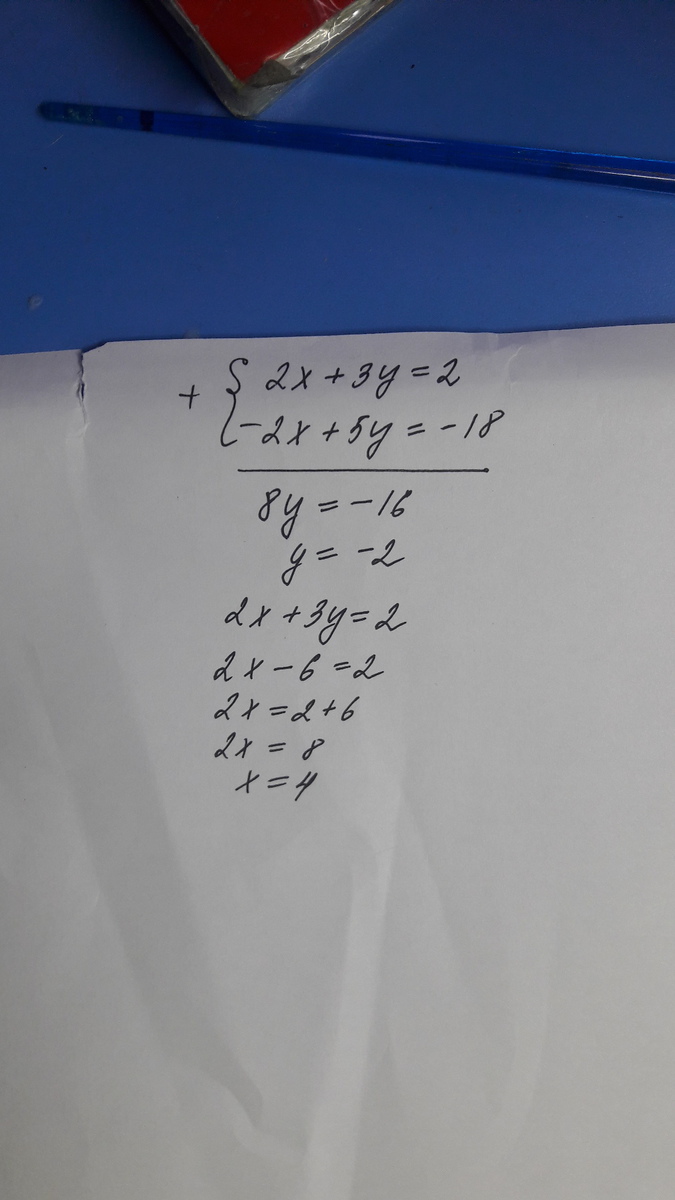 + { 2x + 3y = 2
-2x + 5y = -18
8y = -16
y = -2
2x + 3y = 2
2x - 6 = 2
2x = 2 + 6
2x = 8
x = 4